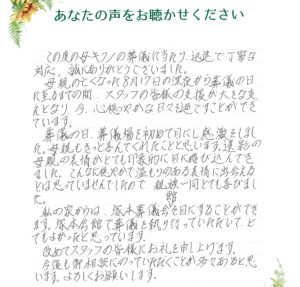 あなたの声をお聴かせください
この度の母キクノの葬儀に当たり、迅速で丁寧な
対応、誠にありがとうございました。
母親の亡くなった8月17日の深夜から葬儀の日
に至るまでの間、スタッフの皆様の支援が大きな支
えとなり、今、心穏やかな日々を過すことができ
ています。
葬儀の日、葬儀場を初めて目にし感激をしま
した。母親もきっと喜んでくれたことと思います。遺影の
母親の表情がとても印象的に目に飛び込んでき
ました。こんなに穏やかで温もりのある表情に出会える
とは思っていませんでしたので、親族一同とても喜びまし
た。
私の家からは、塚本葬儀会館を目にすることができ
ます。塚本会館で葬儀を執り行っていただいて、と
てもよかったと思っています。
改めてスタッフの皆様にお礼を申し上げます。
今後も御相談にのっていただくことが多々あると思
います。よろしくお願いします。